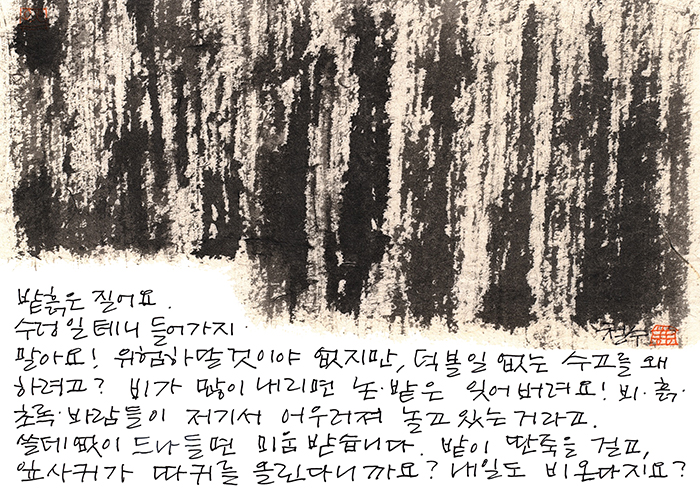 철수
밭흙은 질어요.
수렁일테니 들어가지
말아요! 위험하달것이야 없지만, 덕볼일 없는 수고를 왜
하려고? 비가 많이 내리면 논·밭은 잊어버려요! 비·흙·
초록·바람들이 저기서 어우러져 놀고있는거라고.
쓸데없이 드나들면 미움받습니다. 밭이 딴죽을 걸고,
잎사귀가 따귀를 올린다니까요? 내일도 비온다지요?